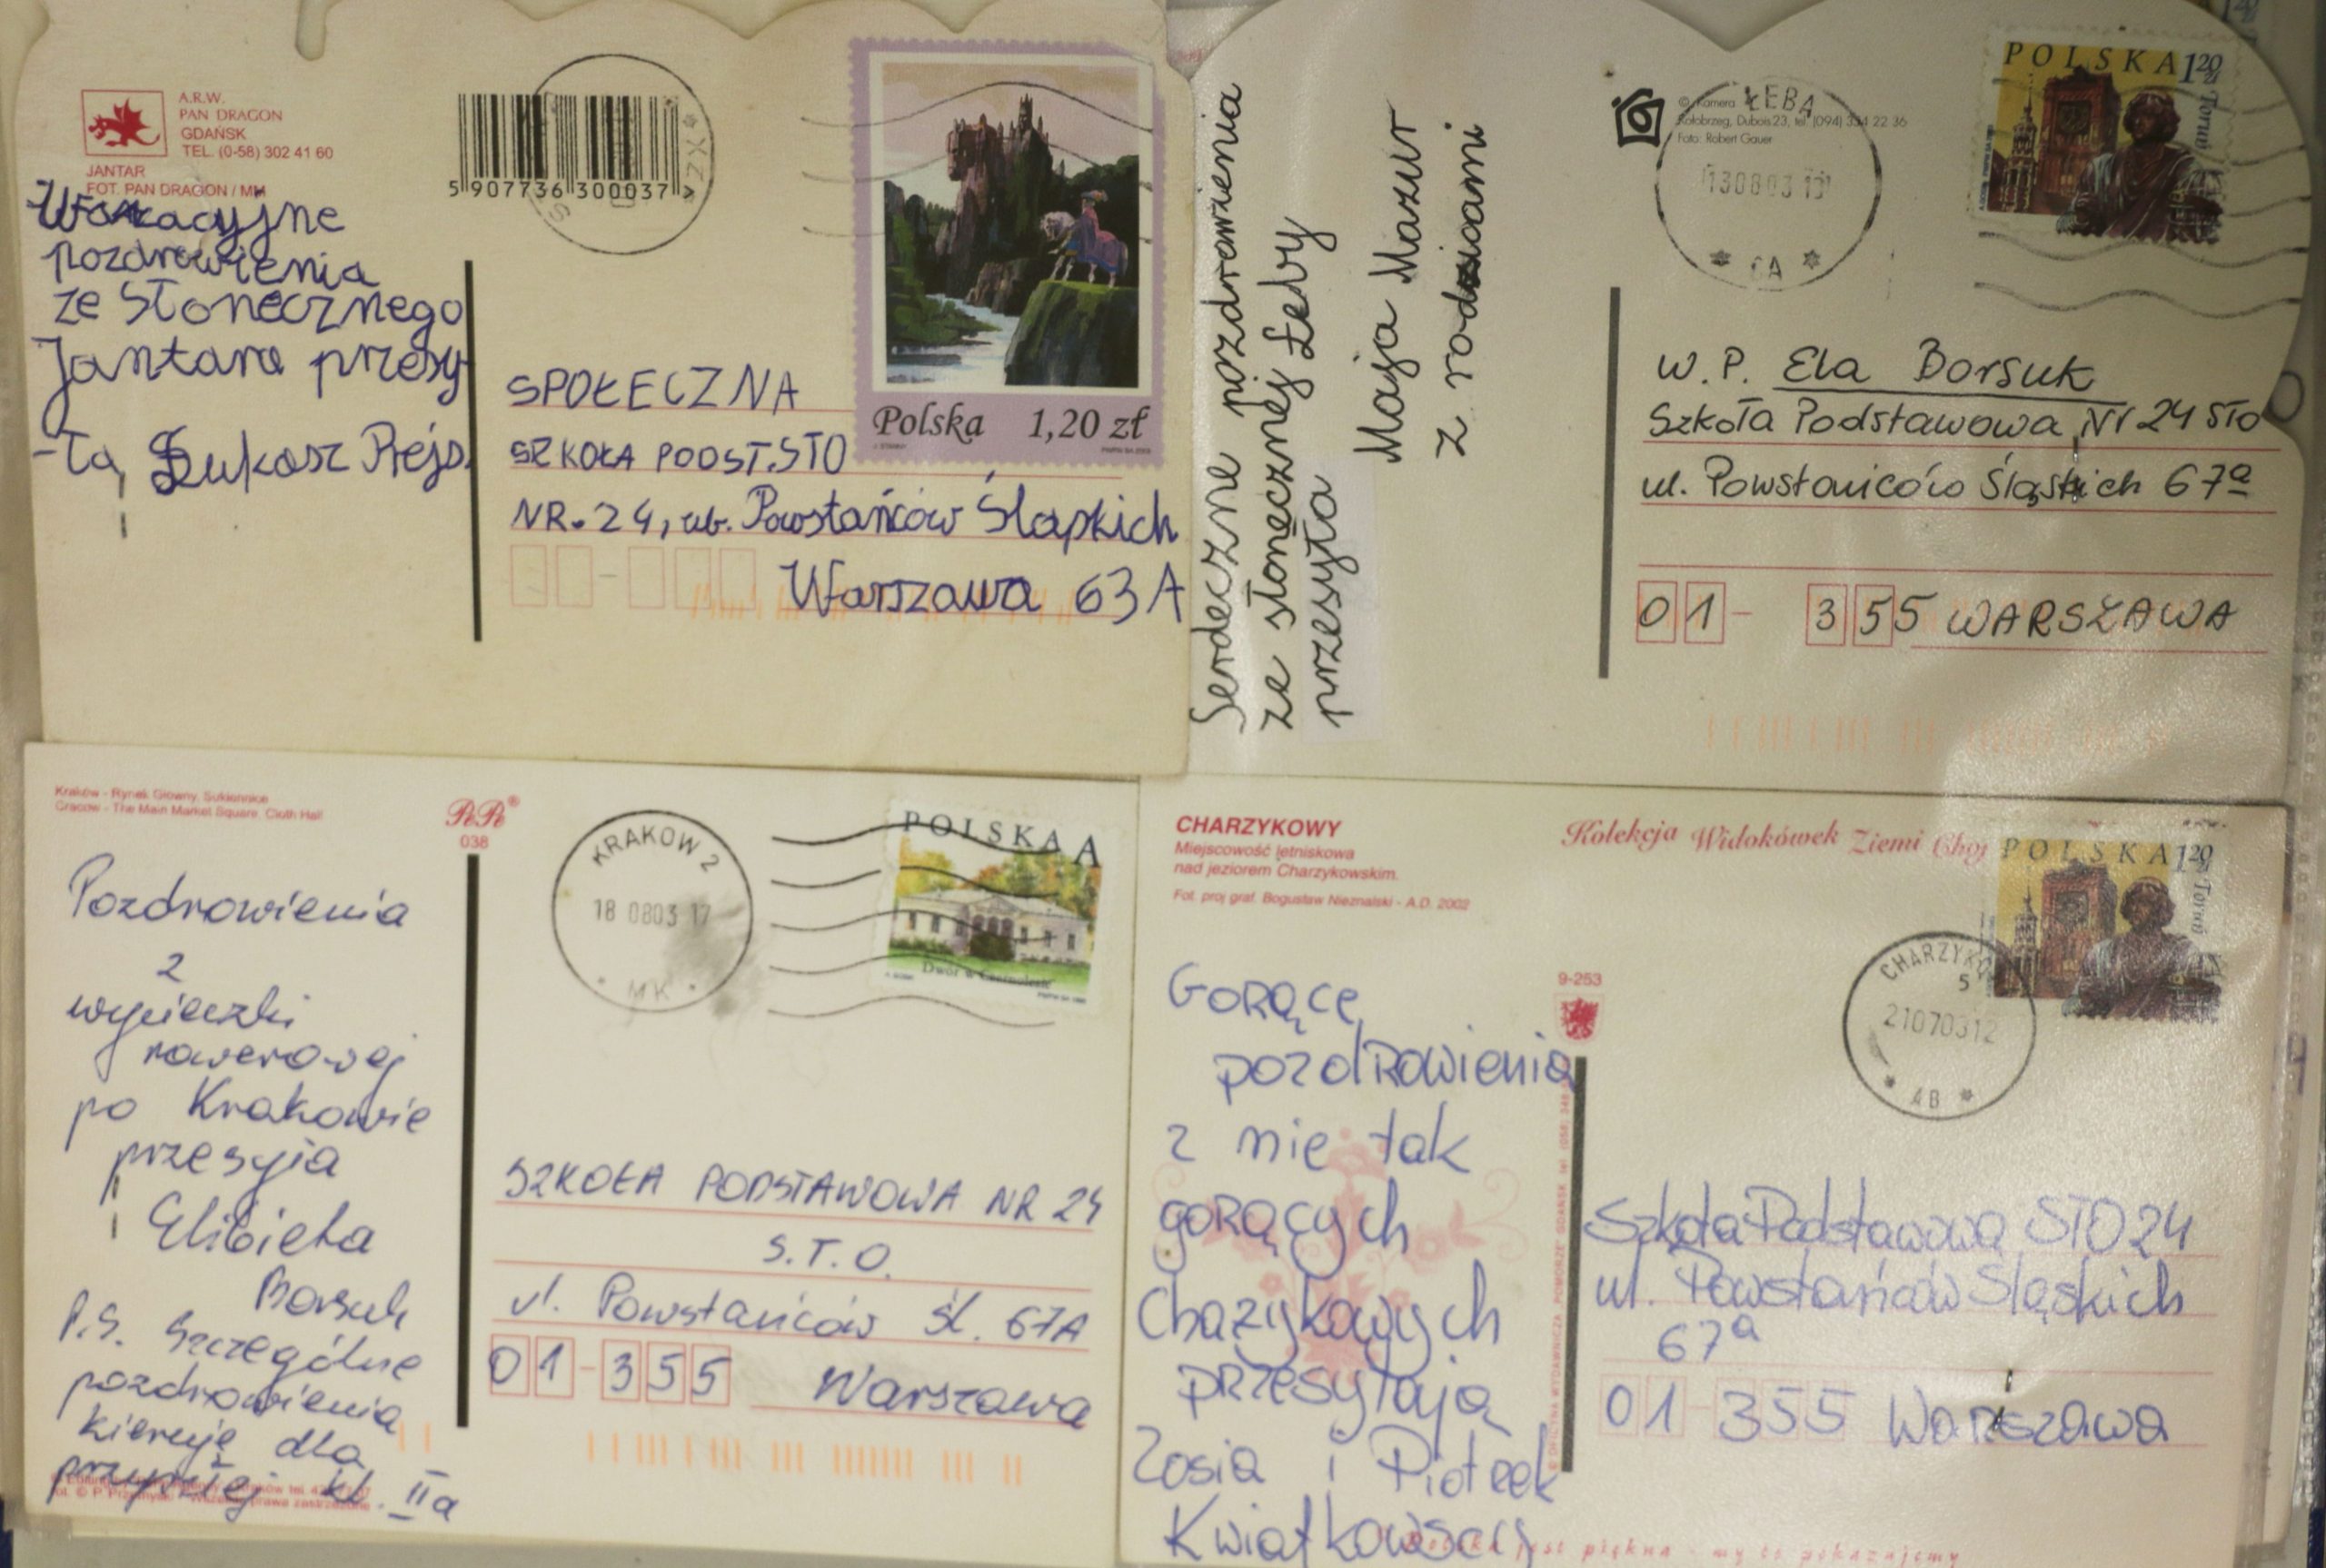 A.R.W.
PAN DRAGON
GDAŃSK
TEL. (0-58) 302 41 60
JANTAR
FOT. PAN DRAGON / MM
5 907736 300037 >
Wakacyjne
pozdrowienia
ze Słonecznego
Jantara przesy-
-ła, Łukasz Rejs.
Polska 1,20 zł
SPOŁECZNA
SZKOŁA PODST. STO
NR. 24, ul. Powstańców Śląskich
Warszawa 63A
Serdeczne pozdrowienia
ze słonecznej Łeby
przesyła
Maja Mazur
z rodzicami
© Kamera
Kołobrzeg, Dubois 23, tel. (094) 354 22 36
Foto: Robert Gauer
ŁEBA
130803
CA
POLSKA 120 zł
Toruń
W. P. Ela Borsuk
Szkoła Podstawowa Nr 24 STO
ul. Powstańców Śląskich 67a
01-355 WARSZAWA
Kraków - Rynek Główny, Sukiennice
Cracow - The Main Market Square, Cloth Hall
038
KRAKOW 2
18 0803 17
MK
POLSKA A
Pozdrowienia
z
wycieczki
rowerowej
po Krakowie
przesyła
Elżbieta
Borsuk
P.S. Szczególne
pozdrowienia
kieruję dla
przyszłej kl. IIa
SZKOŁA PODSTAWOWA NR 24
S.T.O.
ul. Powstańców Śl. 67A
01-355 Warszawa
CHARZYKOWY
Miejscowość letniskowa
nad jeziorem Charzykowskim.
Fot. proj graf. Bogusław Nieznalski - A.D. 2002
Kolekcja Widokówek Ziemi Choj
POLSKA 120 zł
Toruń
9-253
CHARZYKO
5
21070312
AB
Gorące
pozdrowienia
z nie tak
gorących
Chażykowych
przesyłają
Zosia i Piotrek
Kwiatkowscy
Szkoła Podstawowa STO 24
ul. Powstańców Śląskich
67a
01 355 Warszawa
Polska jest piękna - my to pokazujemy